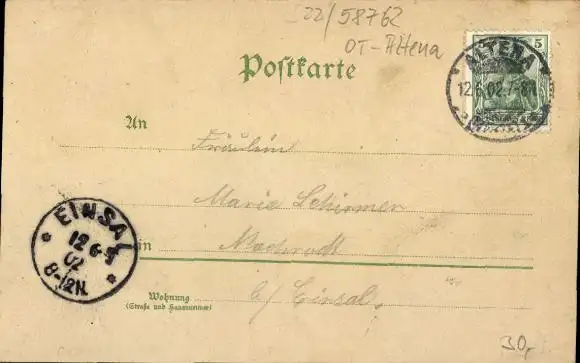 22/58762
OT-Altena
Postkarte
5
ALTENA
12.6.02.7-8N
An
Fräulein
Marie Schirmer
in
b/ Einsal.
EINSAL
12 6
02
8-12N.
Wohnung
(Straße und Hausnummer)
30,